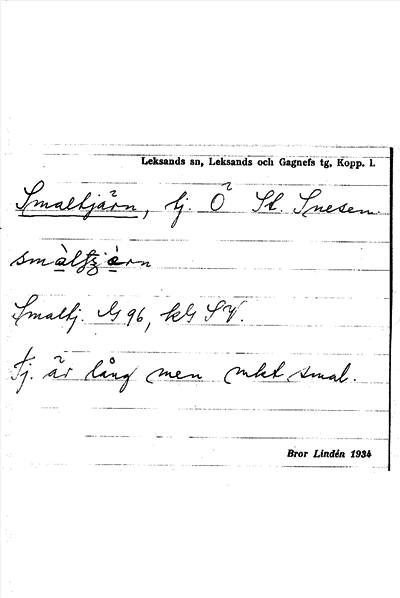 Leksands sn, Leksands och Gagnefs tg, Kopp. l.
Smaltjärn, tj. Ö St. Snesen.
Smaltj. G 96, kG SV.
Tj. är lång men mkt smal.
Bror Lindén 1934